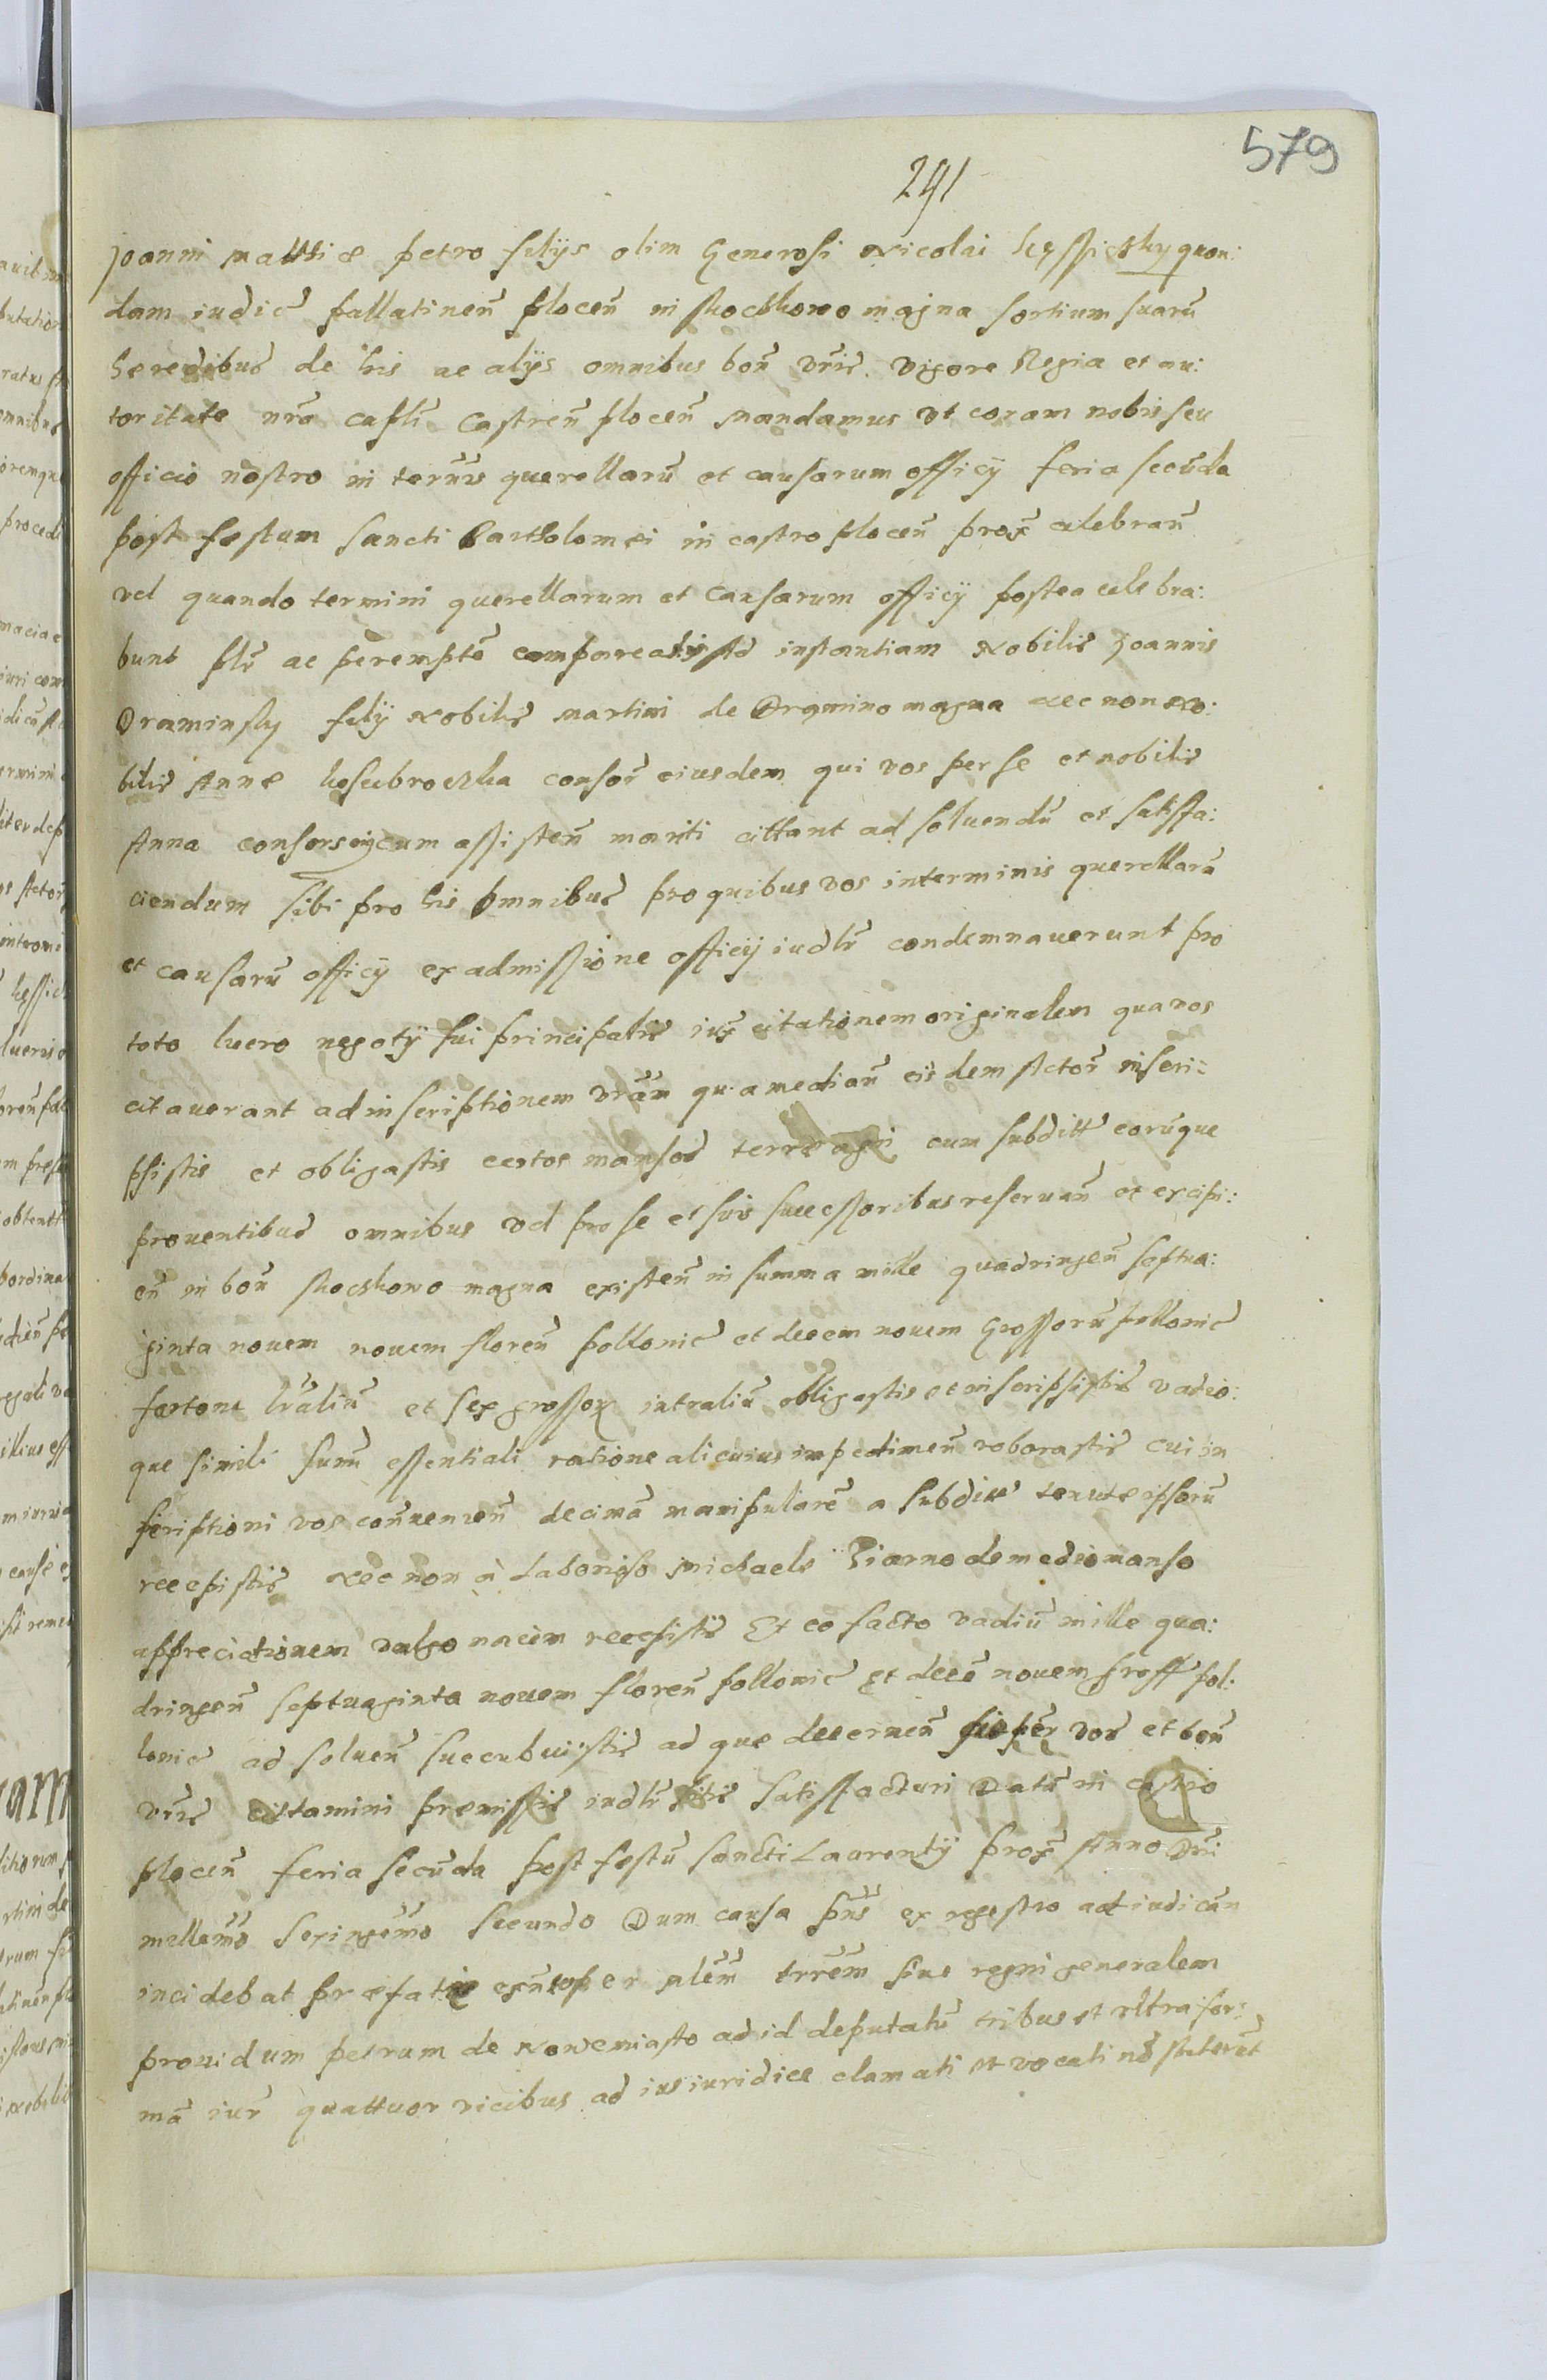 579
291
Joanni Matthiæ Petro filijs olim Generosi Nicolai kęssickÿ quon:
dam iudic̃ pallatinen̄ plocen̄ in skocżkowo magna sortium suarū
heredibus de his ac alijs omnibus bon̄ vr̄is. Vigore Regia et au:
toritate nr̄a capli Castren̄ plocen̄ Mandamus vt coram nobis seu
officio nostro in termīs querellarū et causarum officij feria secūda
post festum Sancti Bartholomei in castro plocen̄ prox̄ celebran̄
vel quando termini querellarum et causarum officij postea celebra:
bunt plr̄ ac perempte̅ compareatis Ad instantiam Nobilis Joannis
Draminsky filij Nobilis Martini de Drqmino magna necnon No:
bilis Annæ consor̄ eiusdem qui vos per se et nobilis
Anna consors eijcum assisten̄ mariti cittant ad soluendū et satisfa:
ciendum sibi pro his omnibus pro quibus vos in terminis querellarū
et causarū officij ex admissione officij iudlr̄ condemnauerunt pro
toto lucro negotij sui principalis iux̄ citationem originalem qua vos
citauerant ad inscriptionem vr̄am qua median̄ eisdem Actor̄ inscri:
psistis et obligastis certos mansos terræ agri cum subditt̄ eorūque
prouentibus omnibus vel pro se et suis successoribus reseruan̄ et excipi:
en̄ in bon̄ skocskowo magna existen̄ in summa mille quadringen̄ septua:
ginta nouem nouem floren̄ pollonic̃ et decem nouem Grossorū pollonic̃
fertont lr̄aliū et sex grossox̄ intraliū obligastis et inscripsistis vadio:
que simili sum̄ essentiali ratione alicuius impedimen̄ roborastis cui in
scriptioni vos con̄uenien̄ decimā manipularē a subditt̄ tenutæ ipsorū
recepistis Necnon à Laborioso Michaele Ziarno de medio manso
appreciationem vulgo nacim recepistis Et eo facto vadiū mille qua:
dringen̄ septuaginta nouem floren̄ pollonic̃ et decē nouem gross̄ pol:
lonic̃ ad soluen̄ succubuistis ad que decernen̄ super vos et bon̄
vr̄is cittamini præmissis iudlr̄ sitis satisfacturi Datū in castro
plocen̄ feria secūda post festū sancti Laurentij prox̄ Anno Dn̄i
millem̄o sexingem̄o secundo Dum causa pn̄s ex regestro ad iudican̄
incidebat præfati per mlēm̄ trrēm̄ siue regni generalem
prouidum petrum de Nowemiasto ad id deputatū tribus et vltra for:
mā iur̄ quattuor vicibus ad ius iuridice clamati et vocati nō steterūt